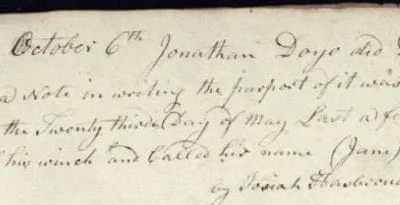 October 6th Jonathan Doyo did
a Note in writing the purport of it was
the Twenty third Day of May Last a
his winch and Called her name (Jane)
by Josiah Hasbrouc